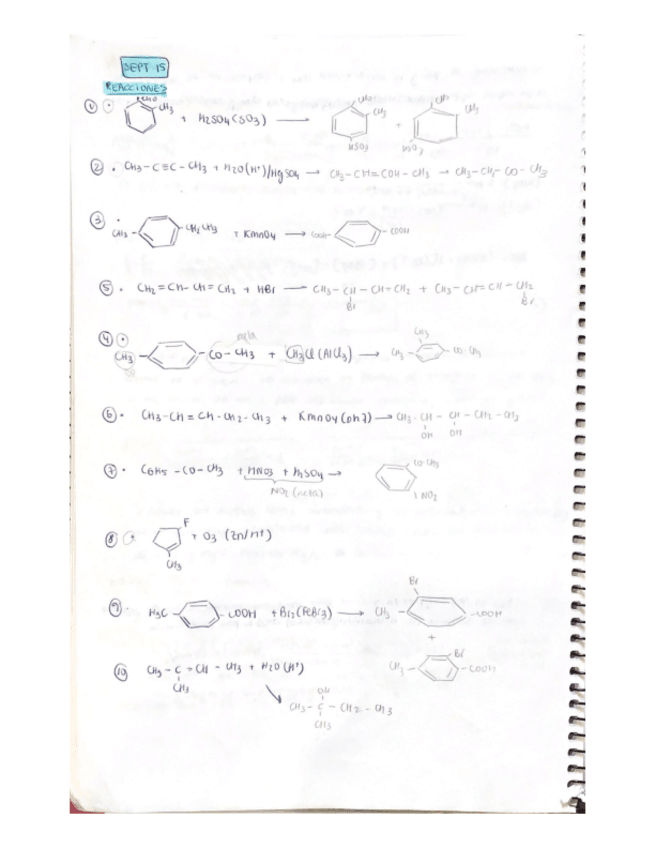 SEPT 15
REACCIONES
1) CHO CH3 + H2SO4 (SO3) → CHO CH3 HSO3 + CHO CH3 HSO3
2) CH3-C≡C-CH3 + H2O (H+)/HgSO4 → CH3-CH=COH-CH3 → CH3-CH2-CO-CH3
3) CH3- -CH2CH3 + KMnO4 → COOH- -COOH
5) CH2=CH-CH=CH2 + HBr → CH3-CH-CH=CH2 + CH3-CH=CH-CH2
Br Br
4) CH3- -CO-CH3 + CH3Cl (AlCl3) → CH3- CH3 -CO-CH3
meta
6) CH3-CH=CH-CH2-CH3 + KMnO4 (pH7) → CH3-CH-CH-CH2-CH3
OH OH
7) C6H5-CO-CH3 + HNO3 + H2SO4 → CO-CH3
NO2 (meta) NO2
8) F + O3 (Zn/H+)
CH3
9) H3C- -COOH + Br2 (FeBr3) → CH3- Br -COOH
+
CH3- Br -COOH
10) CH3-C=CH-CH3 + H2O (H+)
CH3
OH
CH3-C-CH2-CH3
CH3